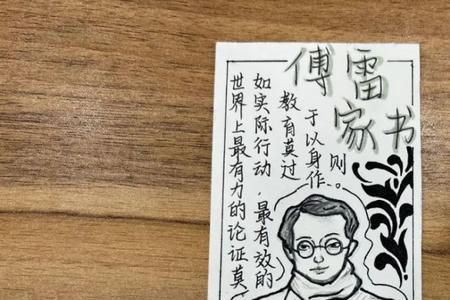 傅雷
家书
世界上最有力的论证莫
如实际行动，最有效的
教育莫过
于以身作
则。